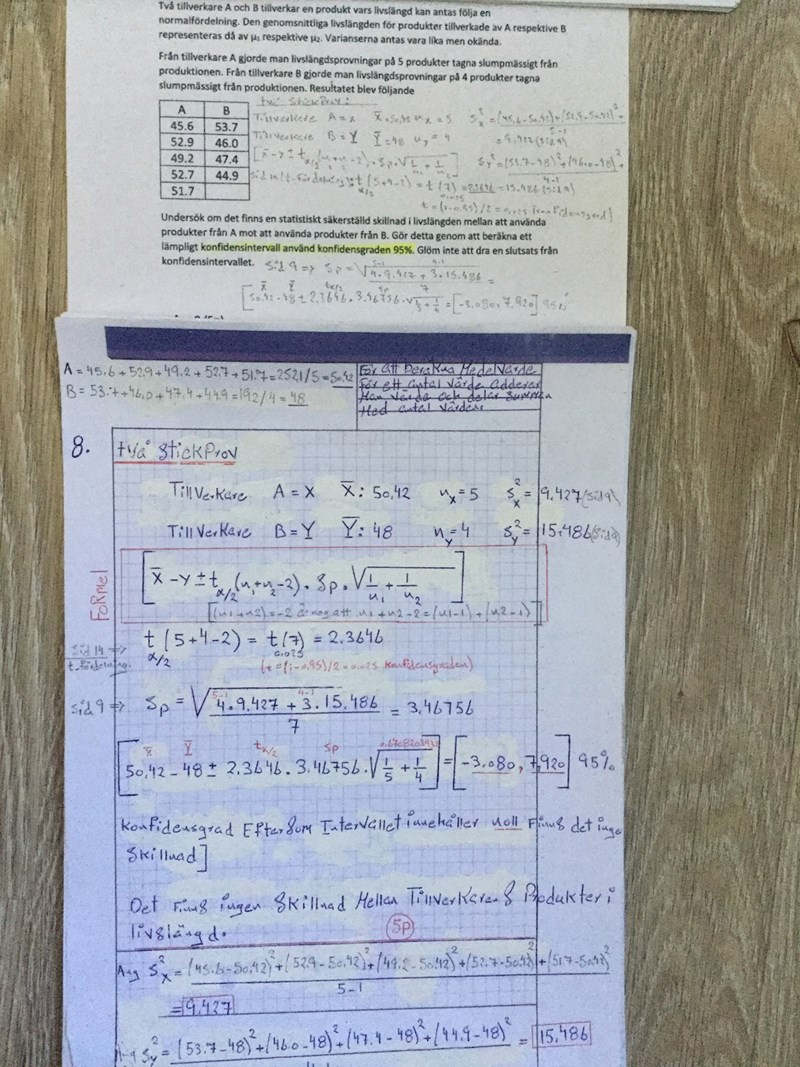 Två tillverkare A och B tillverkar en produkt vars livslängd kan antas följa en
normalfördelning. Den genomsnittliga livslängden för produkter tillverkade av A respektive B
representeras då av μ₁ respektive μ₂. Varianserna antas vara lika men okända.
Från tillverkare A gjorde man livslängdsprovningar på 5 produkter tagna slumpmässigt från
produktionen. Från tillverkare B gjorde man livslängdsprovningar på 4 produkter tagna
slumpmässigt från produktionen. Resultatet blev följande
A B
45.6 53.7
52.9 46.0
49.2 47.4
52.7 44.9
51.7
två StickProv:
Tillverkare A = x x̄ = 50.42 nx = 5 Sx² = (45.6-50.42)²+(52.9-50.42)²+
5-1
= 9.427 (sid 9)
Tillverkare B = Y Ȳ = 48 ny = 4
[x̄-y ± tα/2(n₁+n₂-2) · Sp · √1/n₁ + 1/n₂] Sy² = (53.7-48)²+(46.0-48)²+
4-1
t (5+4-2) = t(7) = 2.3646 = 15.486 (sid 9)
α/2 0.025
t = (1-0.95)/2 = 0.025
Undersök om det finns en statistiskt säkerställd skillnad i livslängden mellan att använda
produkter från A mot att använda produkter från B. Gör detta genom att beräkna ett
lämpligt konfidensintervall använd konfidensgraden 95%. Glöm inte att dra en slutsats från
konfidensintervallet. Sid 9 => Sp = √4·9.427 + 3·15.486 =
7
[50.42 - 48 ± 2.3646 · 3.46756 · √1/5 + 1/4] = [-3.080, 7.920] 95%
A = 45.6 + 52.9 + 49.2 + 52.7 + 51.7 = 252.1/5 = 50.42
B = 53.7 + 46.0 + 47.4 + 44.9 = 192/4 = 48
För att beräkna Medelvärde
För ett antal värde adderar
Man värde och delar summan
Med antal värdena
8. två StickProv
Tillverkare A = X X̄: 50.42 nx = 5 Sx² = 9.427 (sid 9)
Tillverkare B = Y Ȳ: 48 ny = 4 Sy² = 15.486 (sid 9)
Formel
[x̄ - y ± tα/2 (n₁+n₂-2) · Sp · √1/n₁ + 1/n₂]
n₁+n₂-2 = (n1-1) + (n2-1)
Sid 14 =>
t-fördelning
t (5+4-2) = t(7) = 2.3646
α/2 0.025
(t = (1-0.95)/2 = 0.025 Konfidensgraden)
Sid 9 => Sp = √4·9.427 + 3·15.486 = 3.46756
5-1 4-1
7
x̄ Ȳ tα/2 Sp
[50.42 - 48 ± 2.3646 · 3.46756 · √1/5 + 1/4] = [-3.080, 7.920] 95%
Konfidensgrad Eftersom Intervallet innehåller noll Finns det inge
Skillnad]
Det Finns ingen Skillnad Mellan Tillverkarens Produkter i
livslängd.
5P
Ang Sx² = (45.6-50.42)²+(52.9-50.42)²+(49.2-50.42)²+(52.7-50.42)²+(51.7-50.42)²
5-1
= 9.427
Sy² = (53.7-48)²+(46.0-48)²+(47.4-48)²+(44.9-48)² = 15.486